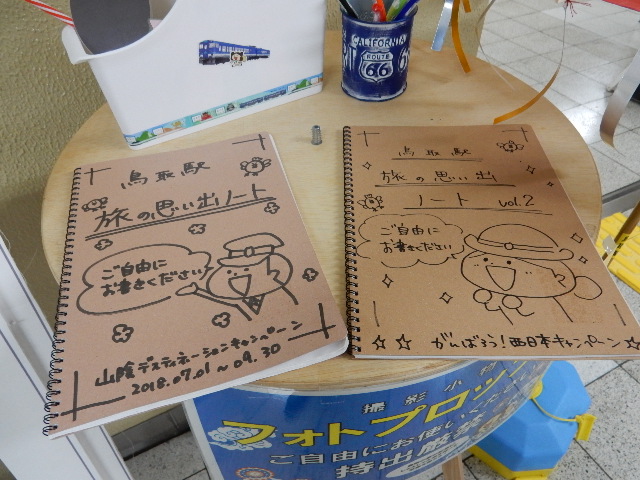 CALIFORNIA
ROUTE
66
鳥取駅
旅の思い出ノート
ご自由に
お書きください!
山陰デスティネーションキャンペーン
2018.07.01～09.30
鳥取駅
旅の思い出
ノート vol.2
ご自由に
お書きください!
がんばろう!西日本キャンペーン
撮影小物
フォトプロップ
ご自由にお使いくだ
持出厳禁